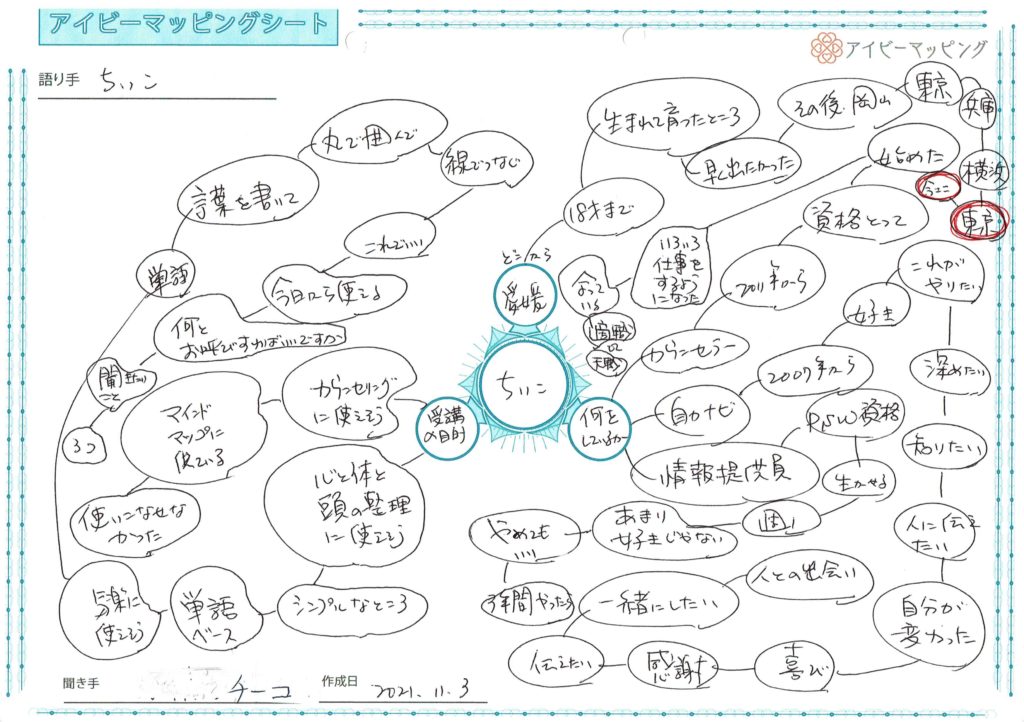 アイビーマッピングシート
アイビーマッピング
語り手 ちいこ
ちいこ
どこから
愛媛
18才まで
生まれて育ったところ
早く出たかった
その後、岡山
東京
兵庫
横浜
東京
今ここ
何を
しているか
からンセラー
2011年から
資格とって
始めた
いろいろ
仕事を
するよう
になった
なって
いる
天職
自力ナビ
2007年から
女子き
これが
やりたい
深めたい
知りたい
人に伝え
たい
自分が
変わった
喜び
感謝
伝えたい
一緒にしたい
人との出会い
情報提供員
PSW資格
生かせる
週1
あまり
好きじゃない
やめても
いい
3年間やったら
受講
の目的
カウンセリング
に使えそう
マインド
マップに
似ている
使いこなせな
かった
心と体と
頭の整理
に使えそう
シンプルなところ
単語
ベース
気楽に
使えそう
単語
言葉を書いて
丸で囲んで
線でつなぐ
これでいい
今日から使える
何と
お呼びすればいいですか
聞きたい
こと
3つ
聞き手 チーコ
作成日 2021.11.3